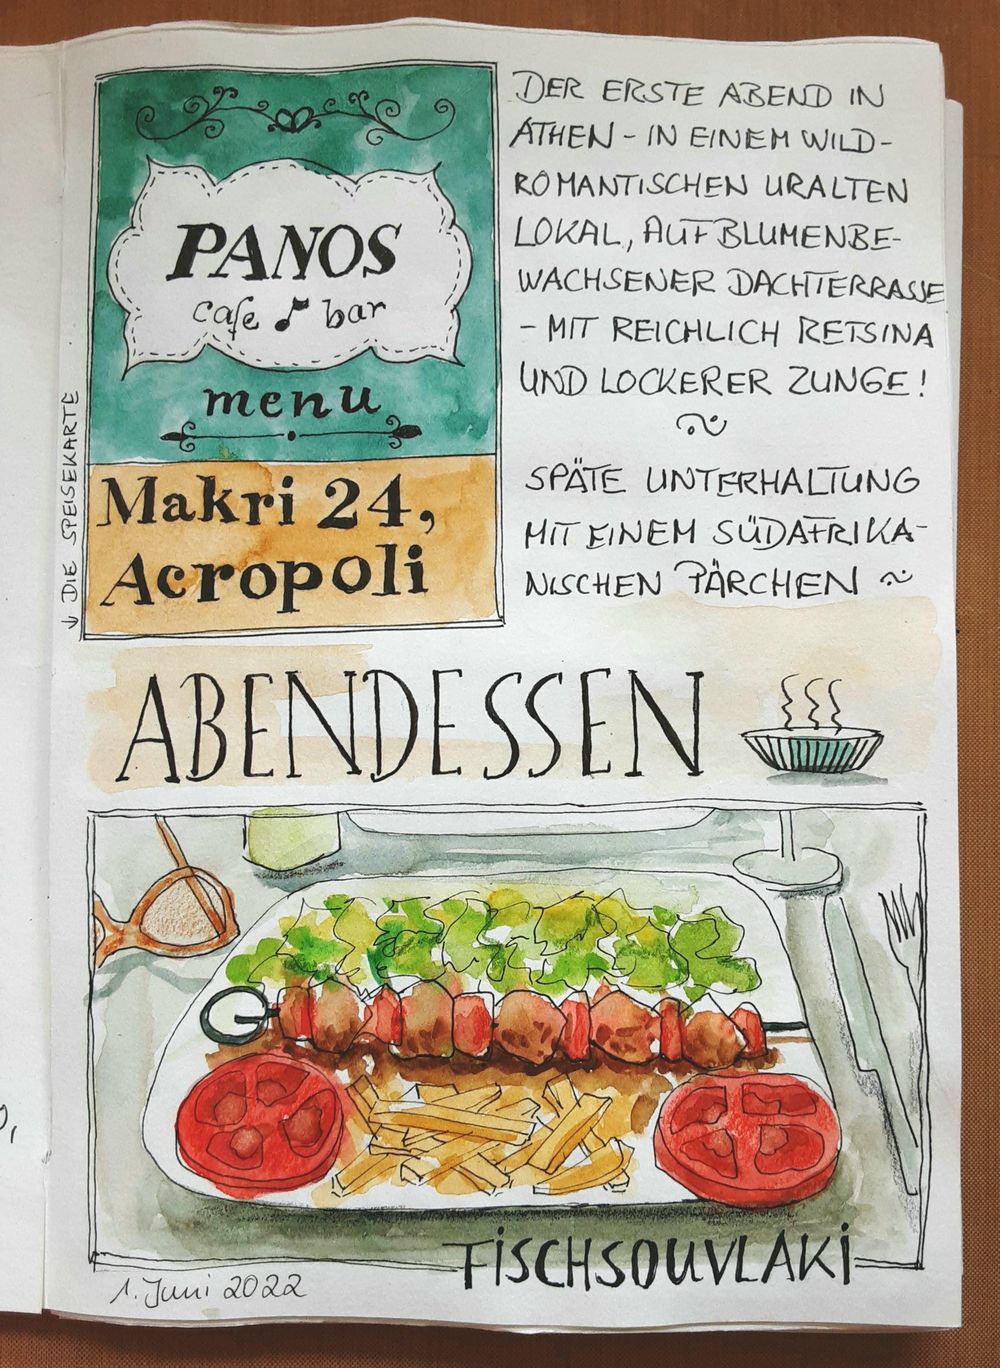 PANOS
cafe bar
menu
Makri 24,
Acropoli
↓ DIE SPEISEKARTE
DER ERSTE ABEND IN
ATHEN - IN EINEM WILD-
ROMANTISCHEN URALTEN
LOKAL, AUF BLUMENBE-
WACHSENER DACHTERRASSE
- MIT REICHLICH RETSINA
UND LOCKERER ZUNGE!
SPÄTE UNTERHALTUNG
MIT EINEM SÜDAFRIKA-
NISCHEN PÄRCHEN ~
ABENDESSEN
FISCHSOUVLAKI
1. Juni 2022